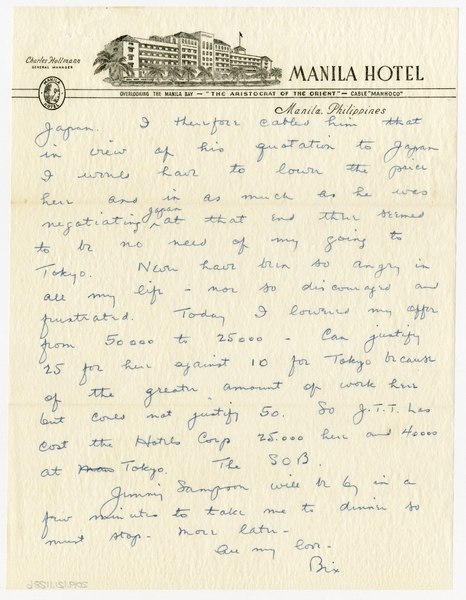 Charles Hollmann
GENERAL MANAGER
MANILA HOTEL
MANILA HOTEL
OVERLOOKING THE MANILA BAY — "THE ARISTOCRAT OF THE ORIENT" — CABLE "MANHOCO"
Manila, Philippines
Japan. I therefore cabled him that
in view of his quotation to Japan
I would have to lower the price
here and in as much as he was
negotiating Japan at that end there seemed
to be no need of my going to
Tokyo. Never have been so angry in
all my life - nor so discouraged and
frustrated. Today I lowered my offer
from 50000 to 25000 - Can justify
25 for here against 10 for Tokyo because
of the greater amount of work here
but could not justify 50. So J.T.T. has
cost the Hotels Corp 25.000 here and 40000
at Tokyo. The SOB.
Jimmy Sampson will be by in a
few minutes to take me to dinner so
must stop. More later -
All my love.
Bix